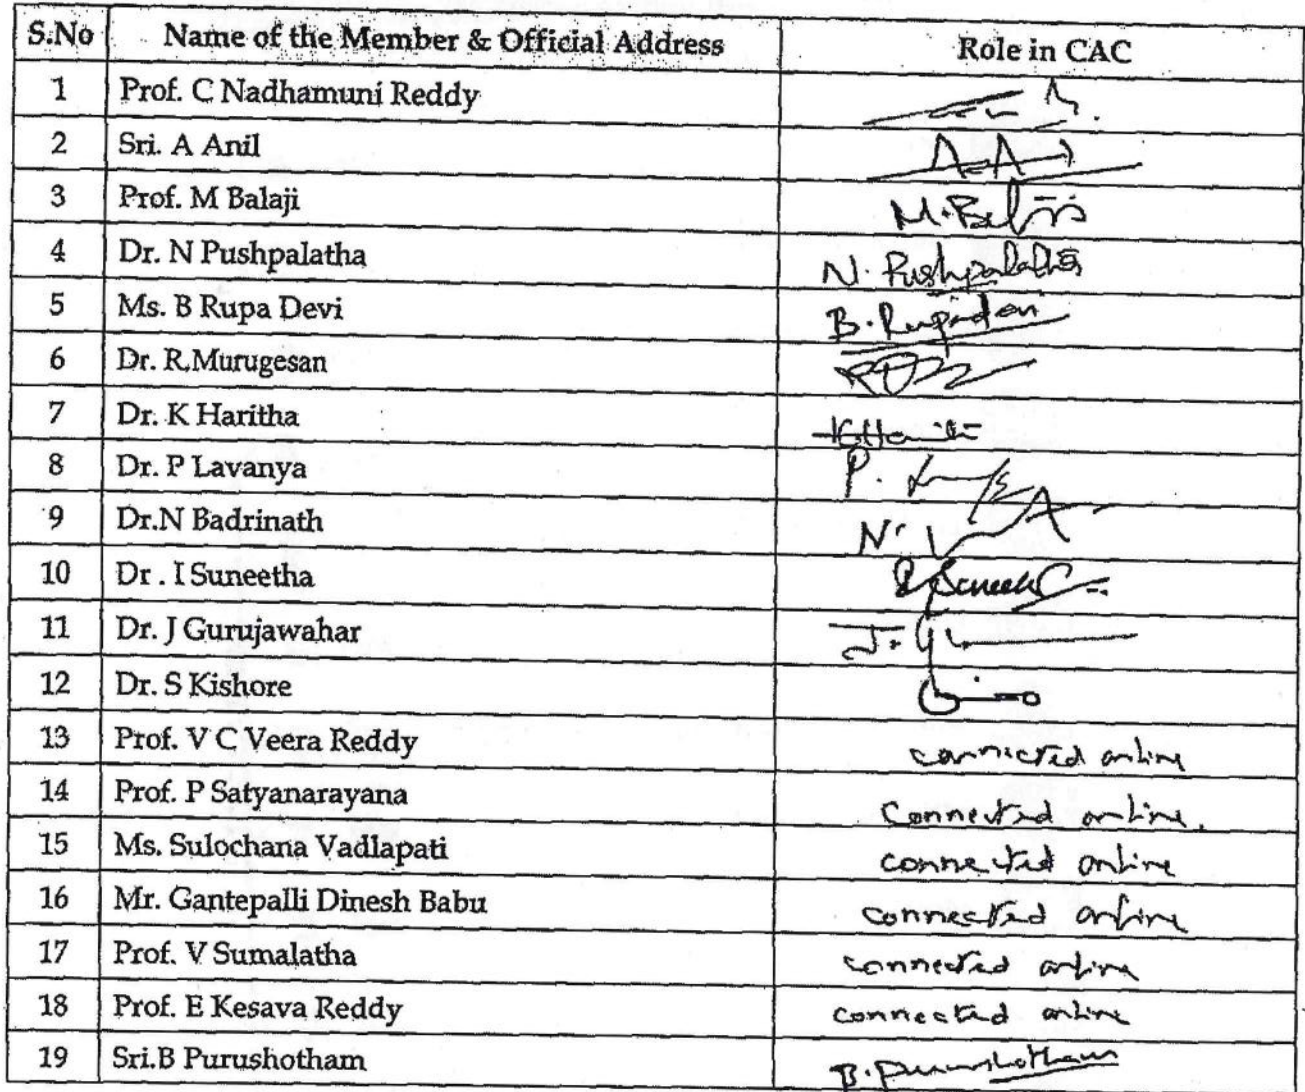 S.No Name of the Member & Official Address Role in CAC
1 Prof. C Nadhamuni Reddy
2 Sri. A Anil
3 Prof. M Balaji M. Balaji
4 Dr. N Pushpalatha N. Pushpalatha
5 Ms. B Rupa Devi B. Rupadevi
6 Dr. R.Murugesan
7 Dr. K Haritha K Haritha
8 Dr. P Lavanya P.
9 Dr.N Badrinath N.
10 Dr . I Suneetha
11 Dr. J Gurujawahar J.
12 Dr. S Kishore
13 Prof. V C Veera Reddy connected online
14 Prof. P Satyanarayana Connected online.
15 Ms. Sulochana Vadlapati connected online
16 Mr. Gantepalli Dinesh Babu connected online
17 Prof. V Sumalatha connected online
18 Prof. E Kesava Reddy connected online
19 Sri.B Purushotham B. Purushotham